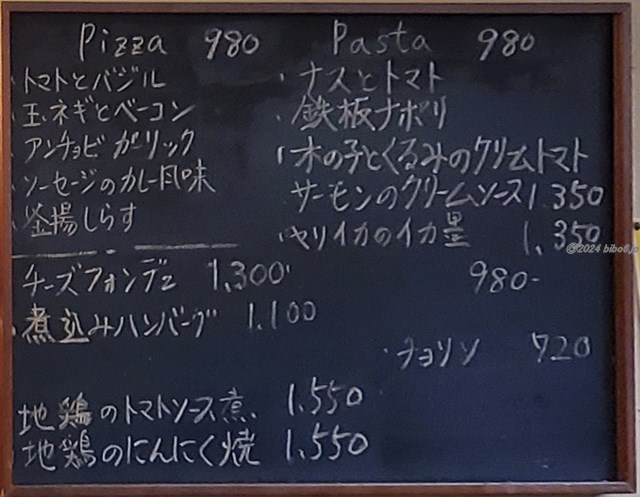 Pizza 980
・トマトとバジル
・玉ネギとベーコン
・アンチョビガーリック
・ソーセージのカレー風味
・釜揚しらす
チーズフォンデュ 1,300
・煮込みハンバーグ 1.100
地鶏のトマトソース煮 1.550
地鶏のにんにく焼 1.550
Pasta 980
・ナスとトマト
・鉄板ナポリ
・木の子とくるみのクリームトマト
サーモンのクリームソース 1.350
・ヤリイカのイカ墨 1,350
980-
・チョリソ 720
©2024 bibo6.jp